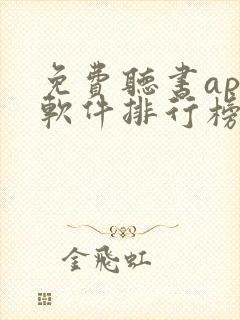 免費聽書ap
軟件排行榜
金飛虹